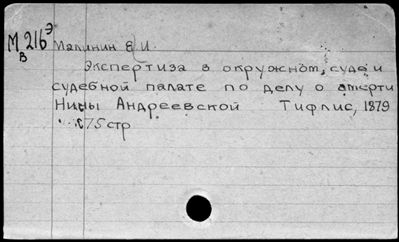 М 216 Э Малинин Е. И.
В
Экспертиза в окружном, суде и
судебной палате по делу о смерти
Нины Андреевской Тифлис, 1879
75 стр